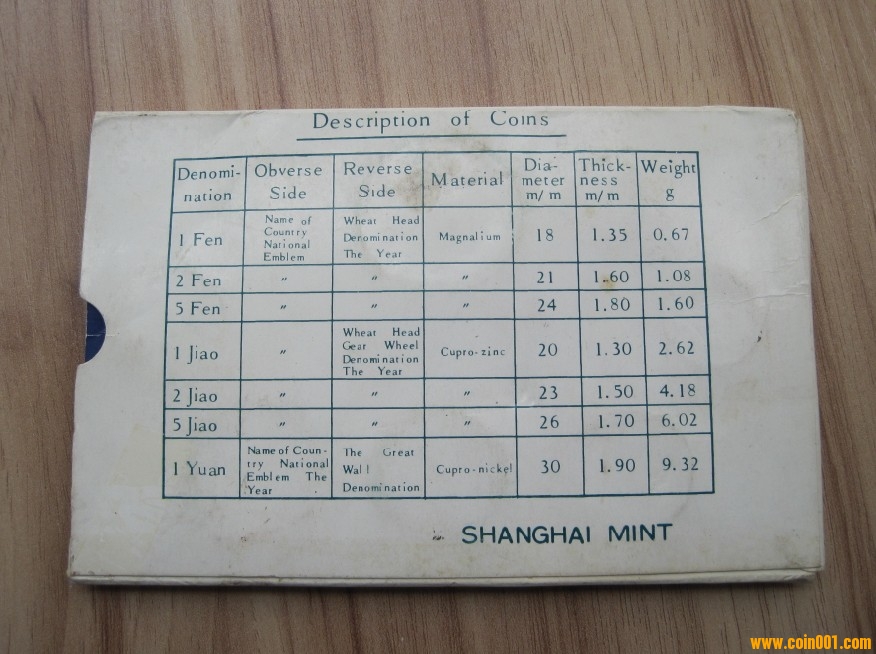 Description of Coins
Denomi-nation Obverse Side Reverse Side Material Dia-meter m/m Thick-ness m/m Weight g
1 Fen Name of Country National Emblem Wheat Head Denomination The Year Magnalium 18 1.35 0.67
2 Fen " " " 21 1.60 1.08
5 Fen " " " 24 1.80 1.60
1 Jiao " Wheat Head Gear Wheel Denomination The Year Cupro-zinc 20 1.30 2.62
2 Jiao " " " 23 1.50 4.18
5 Jiao " " " 26 1.70 6.02
1 Yuan Name of Coun-try National Emblem The Year The Great Wall Denomination Cupro-nickel 30 1.90 9.32
SHANGHAI MINT
www.coin001.com